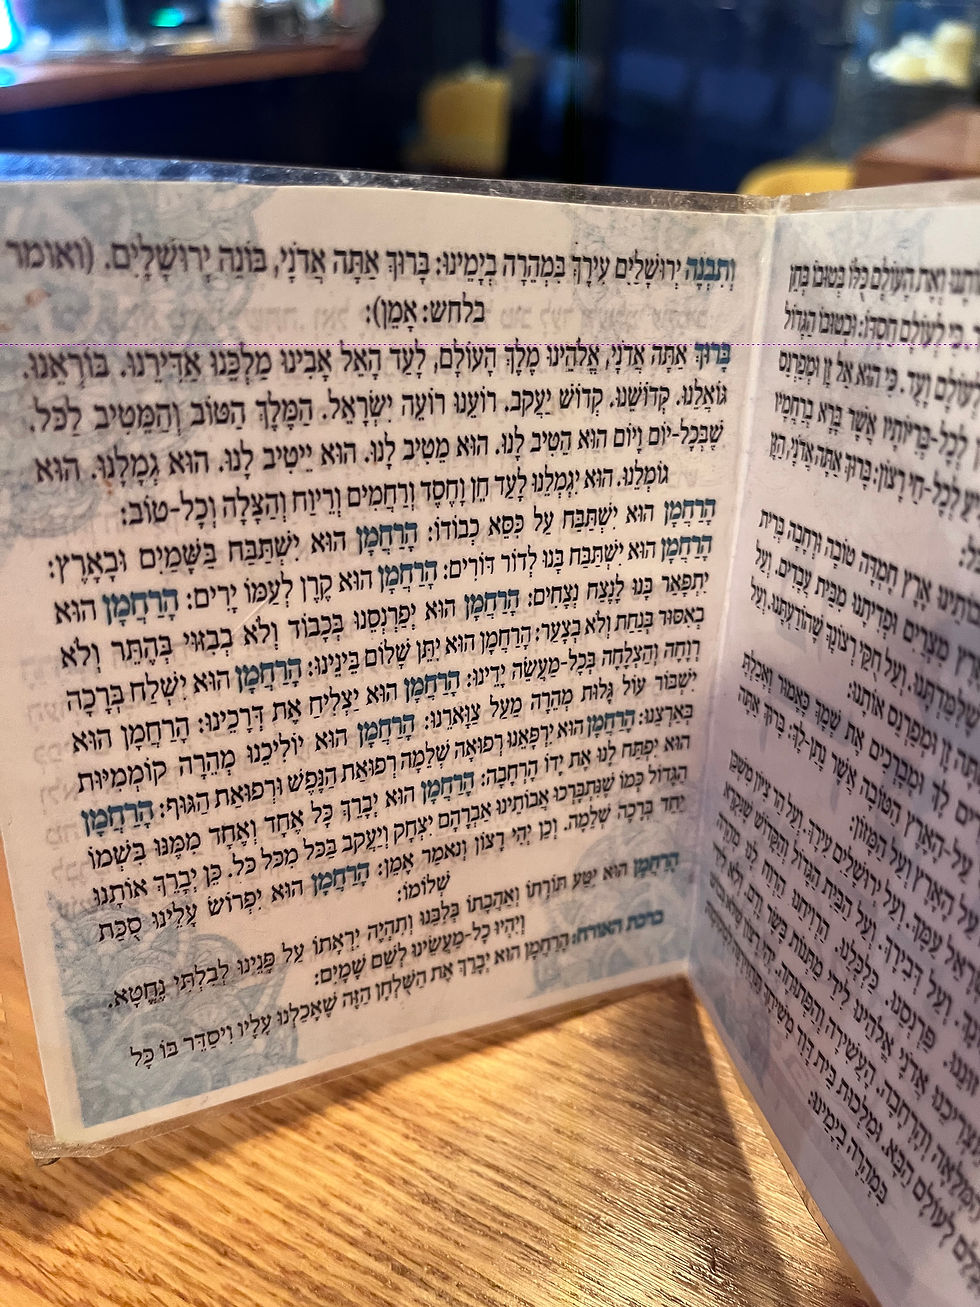 וְאֶת הָעוֹלָם כֻּלּוֹ בְּטוּבוֹ בְּחֵן
כִּי לְעוֹלָם חַסְדּוֹ: וּבְטוּבוֹ הַגָּדוֹל
וָעֶד. כִּי הוּא אֵל זָן וּמְפַרְנֵס
לְכָל-בְּרִיּוֹתָיו אֲשֶׁר בָּרָא בְרַחֲמָיו
לְכָל-חַי רָצוֹן: בָּרוּךְ אַתָּה אֲדֹנָי, הַזָּן
אֶרֶץ חֶמְדָּה טוֹבָה וּרְחָבָה בְּרִית
מִצְרַיִם וּפְדִיתָנוּ מִבֵּית עֲבָדִים, וְעַל
וְעַל חֻקֵּי רְצוֹנְךָ שֶׁהוֹדַעְתָּנוּ, וְעַל
זָן וּמְפַרְנֵס אוֹתָנוּ:
לָךְ וּמְבָרְכִים אֶת שְׁמָךְ כָּאָמוּר וְאָכַלְתָּ
עַל-הָאָרֶץ הַטּוֹבָה אֲשֶׁר נָתַן-לָךְ: בָּרוּךְ אַתָּה
הָאָרֶץ וְעַל הַמָּזוֹן:
עַמָּךְ. וְעַל יְרוּשָׁלַיִם עִירָךְ. וְעַל הַר צִיּוֹן מִשְׁכַּן
וְעַל דְּבִירָךְ. וְעַל הַבַּיִת הַגָּדוֹל וְהַקָּדוֹשׁ שֶׁנִּקְרָא
פַּרְנְסֵנוּ. כַּלְכְּלֵנוּ. הַרְוִיחֵנוּ הַרְוַח לָנוּ מְהֵרָה
אֲדֹנָי אֱלֹהֵינוּ לִידֵי מַתְּנוֹת בָּשָׂר וָדָם. וְלֹא לִידֵי
הָעֲשִׁירָה וְהַפְּתוּחָה. יְהִי רָצוֹן שֶׁלֹּא נֵבוֹשׁ
לְעוֹלָם הַבָּא. וּמַלְכוּת בֵּית דָּוִד מְשִׁיחָךְ
בִּמְהֵרָה בְיָמֵינוּ:
וְתִבְנֶה יְרוּשָׁלַיִם עִירָךְ בִּמְהֵרָה בְיָמֵינוּ: בָּרוּךְ אַתָּה אֲדֹנָי, בּוֹנֵה יְרוּשָׁלָיִם. (ואומר
בלחש: אָמֵן):
בָּרוּךְ אַתָּה אֲדֹנָי, אֱלֹהֵינוּ מֶלֶךְ הָעוֹלָם, לָעַד הָאֵל אָבִינוּ מַלְכֵּנוּ אַדִּירֵנוּ. בּוֹרְאֵנוּ.
גּוֹאֲלֵנוּ. קְדוֹשֵׁנוּ. קְדוֹשׁ יַעֲקֹב. רוֹעֵנוּ רוֹעֵה יִשְׂרָאֵל. הַמֶּלֶךְ הַטּוֹב וְהַמֵּטִיב לַכֹּל.
שֶׁבְּכָל-יוֹם וָיוֹם הוּא הֵטִיב לָנוּ. הוּא מֵטִיב לָנוּ. הוּא יֵיטִיב לָנוּ. הוּא גְמָלָנוּ. הוּא
גוֹמְלֵנוּ. הוּא יִגְמְלֵנוּ לָעַד חֵן וָחֶסֶד וְרַחֲמִים וְרֵיוַח וְהַצָּלָה וְכָל-טוֹב:
הָרַחֲמָן הוּא יִשְׁתַּבַּח עַל כִּסֵּא כְבוֹדוֹ: הָרַחֲמָן הוּא יִשְׁתַּבַּח בַּשָּׁמַיִם וּבָאָרֶץ:
הָרַחֲמָן הוּא יִשְׁתַּבַּח בָּנוּ לְדוֹר דּוֹרִים: הָרַחֲמָן הוּא קֶרֶן לְעַמּוֹ יָרִים: הָרַחֲמָן הוּא
יִתְפָּאַר בָּנוּ לָנֶצַח נְצָחִים: הָרַחֲמָן הוּא יְפַרְנְסֵנוּ בְּכָבוֹד וְלֹא בְבִזּוּי בְּהֶתֵּר וְלֹא
בְאִסּוּר בְּנַחַת וְלֹא בְצַעַר: הָרַחֲמָן הוּא יִתֵּן שָׁלוֹם בֵּינֵינוּ: הָרַחֲמָן הוּא יִשְׁלַח בְּרָכָה
רְוָחָה וְהַצְלָחָה בְּכָל-מַעֲשֵׂה יָדֵינוּ: הָרַחֲמָן הוּא יַצְלִיחַ אֶת דְּרָכֵינוּ: הָרַחֲמָן הוּא
יִשְׁבּוֹר עוֹל גָּלוּת מְהֵרָה מֵעַל צַוָּארֵנוּ: הָרַחֲמָן הוּא יוֹלִיכֵנוּ מְהֵרָה קוֹמְמִיּוּת
בְּאַרְצֵנוּ: הָרַחֲמָן הוּא יִרְפָּאֵנוּ רְפוּאָה שְׁלֵמָה רְפוּאַת הַנֶּפֶשׁ וּרְפוּאַת הַגּוּף: הָרַחֲמָן
הוּא יִפְתַּח לָנוּ אֶת יָדוֹ הָרְחָבָה: הָרַחֲמָן הוּא יְבָרֵךְ כָּל אֶחָד וְאֶחָד מִמֶּנּוּ בִּשְׁמוֹ
הַגָּדוֹל כְּמוֹ שֶׁנִּתְבָּרְכוּ אֲבוֹתֵינוּ אַבְרָהָם יִצְחָק וְיַעֲקֹב בַּכֹּל מִכֹּל כֹּל. כֵּן יְבָרֵךְ אוֹתָנוּ
יַחַד בְּרָכָה שְׁלֵמָה. וְכֵן יְהִי רָצוֹן וְנֹאמַר אָמֵן: הָרַחֲמָן הוּא יִפְרוֹשׂ עָלֵינוּ סֻכַּת
שְׁלוֹמוֹ:
הָרַחֲמָן הוּא יִטַּע תּוֹרָתוֹ וְאַהֲבָתוֹ בְּלִבֵּנוּ וְתִהְיֶה יִרְאָתוֹ עַל פָּנֵינוּ לְבִלְתִּי נֶחֱטָא.
וְיִהְיוּ כָל-מַעֲשֵׂינוּ לְשֵׁם שָׁמָיִם:
ברכת האורח: הָרַחֲמָן הוּא יְבָרֵךְ אֶת הַשֻּׁלְחָן הַזֶּה שֶׁאָכַלְנוּ עָלָיו וִיסַדֵּר בּוֹ כָּל